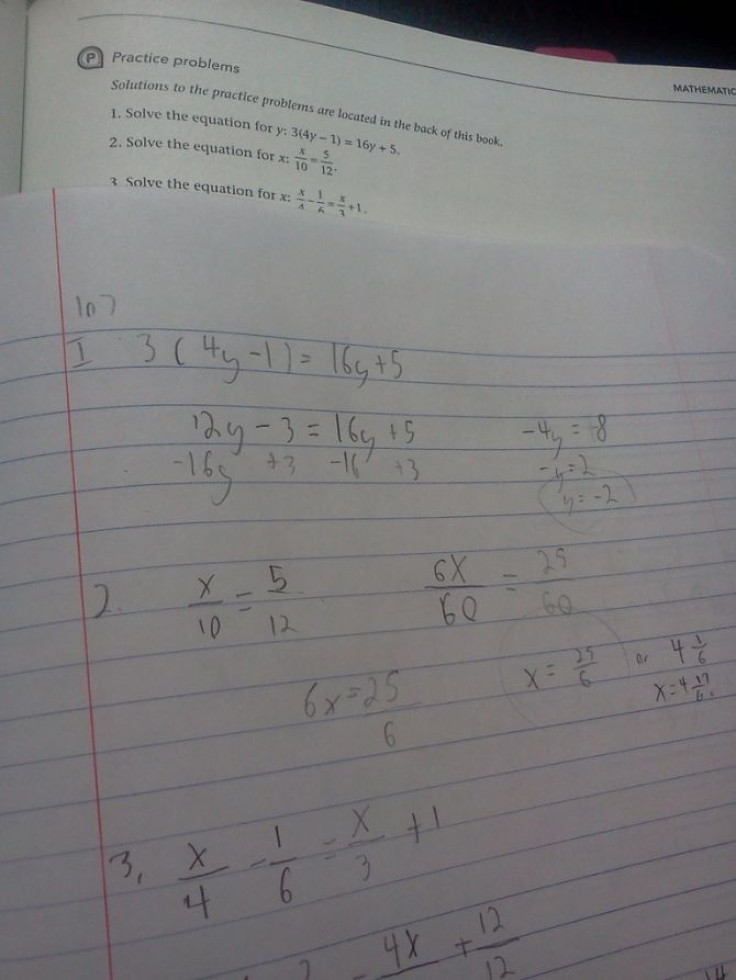 P Practice problems
MATHEMATIC
Solutions to the practice problems are located in the back of this book.
1. Solve the equation for y: 3(4y – 1) = 16y + 5.
2. Solve the equation for x: x/10 = 5/12.
3 Solve the equation for x: x/4 – 1/6 = x/3 + 1.
107
I 3(4y-1) = 16y+5
12y - 3 = 16y +5
-4y = 8
-16y +3 -16 +3
-y=2
y=-2
2. x/10 = 5/12
6X/60 = 25/60
6x=25
6
x = 25/6 or 4 1/6
3, x/4 - 1/6 = x/3 +1
4X + 12/12